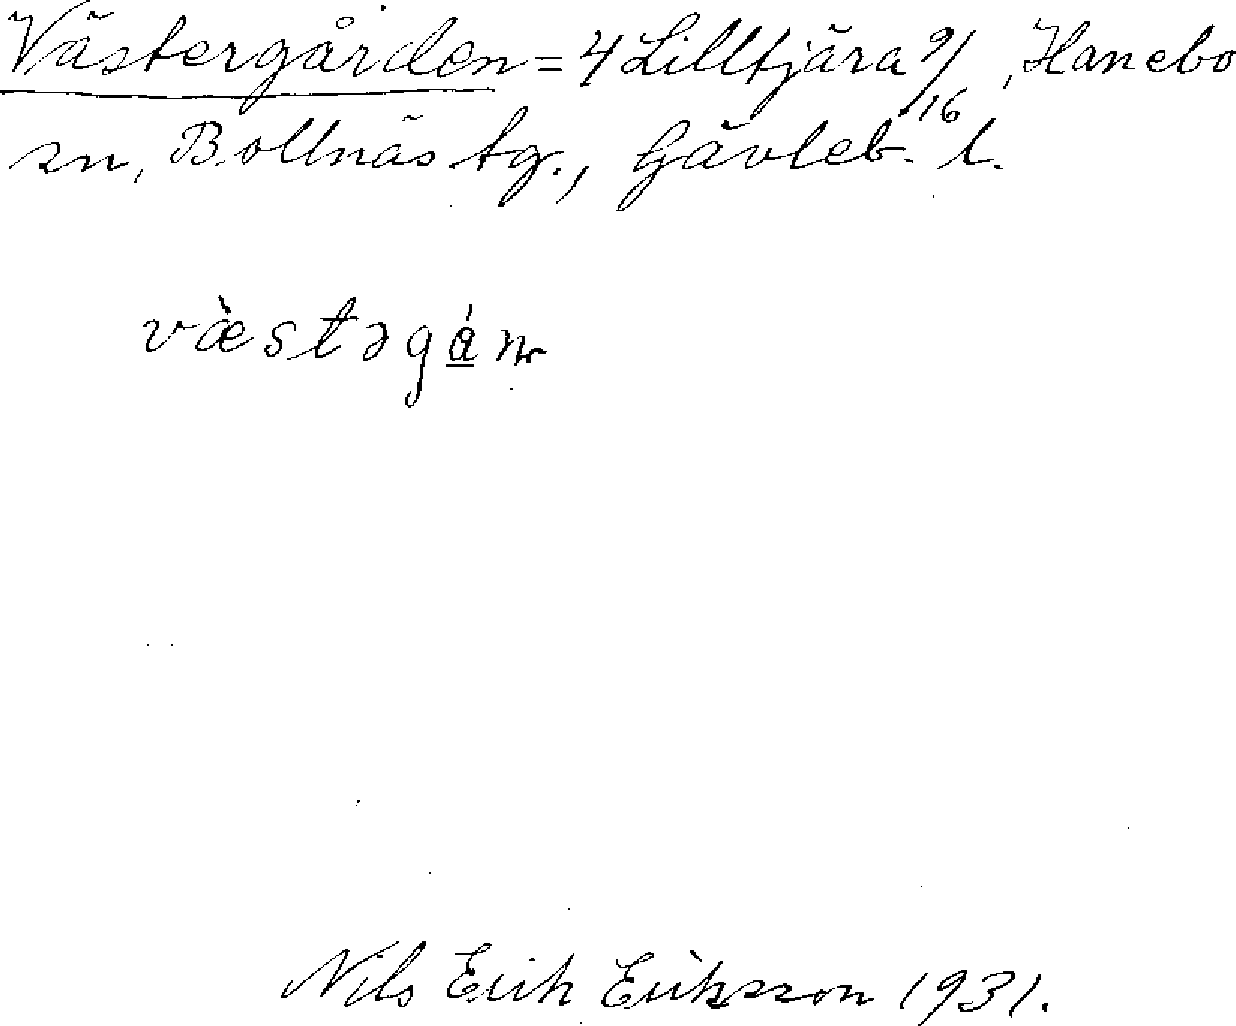 Västergården = 4 Lilltjära 9/16, Hanebo
sn, Bollnäs tg., Gävleb. l.
væ̀stəgá̱n
Nils Erik Eriksson 1931.